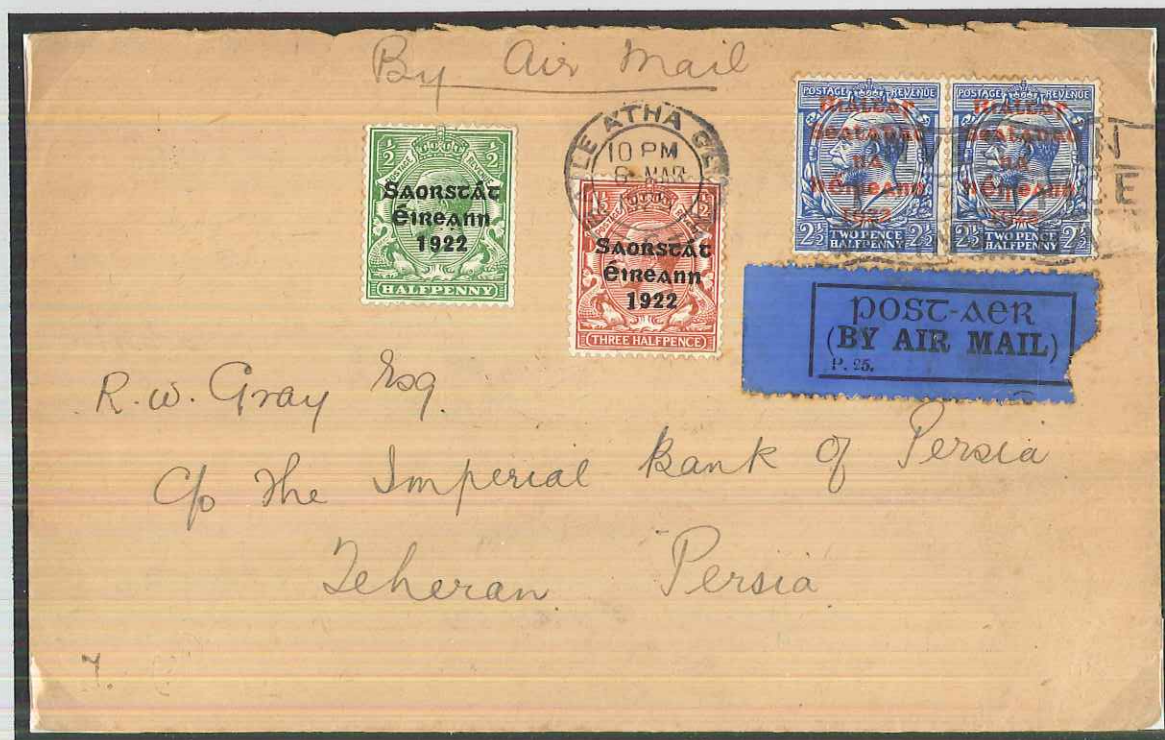 By Air Mail
½ ½
POSTAGE REVENUE
Saorstát
Éireann
1922
HALFPENNY
ATHA
10 PM
MAR
Saorstát
Éireann
1922
THREE HALFPENCE
POSTAGE REVENUE
Rialtas
Sealadac
na
hÉireann
1922
TWO PENCE
HALFPENNY
2½ 2½
POSTAGE REVENUE
Rialtas
Sealadac
na
hÉireann
1922
TWO PENCE
HALFPENNY
2½ 2½
POST-AER
(BY AIR MAIL)
P. 25.
R. W. Gray Esq.
c/o The Imperial Bank of Persia
Teheran Persia
7.